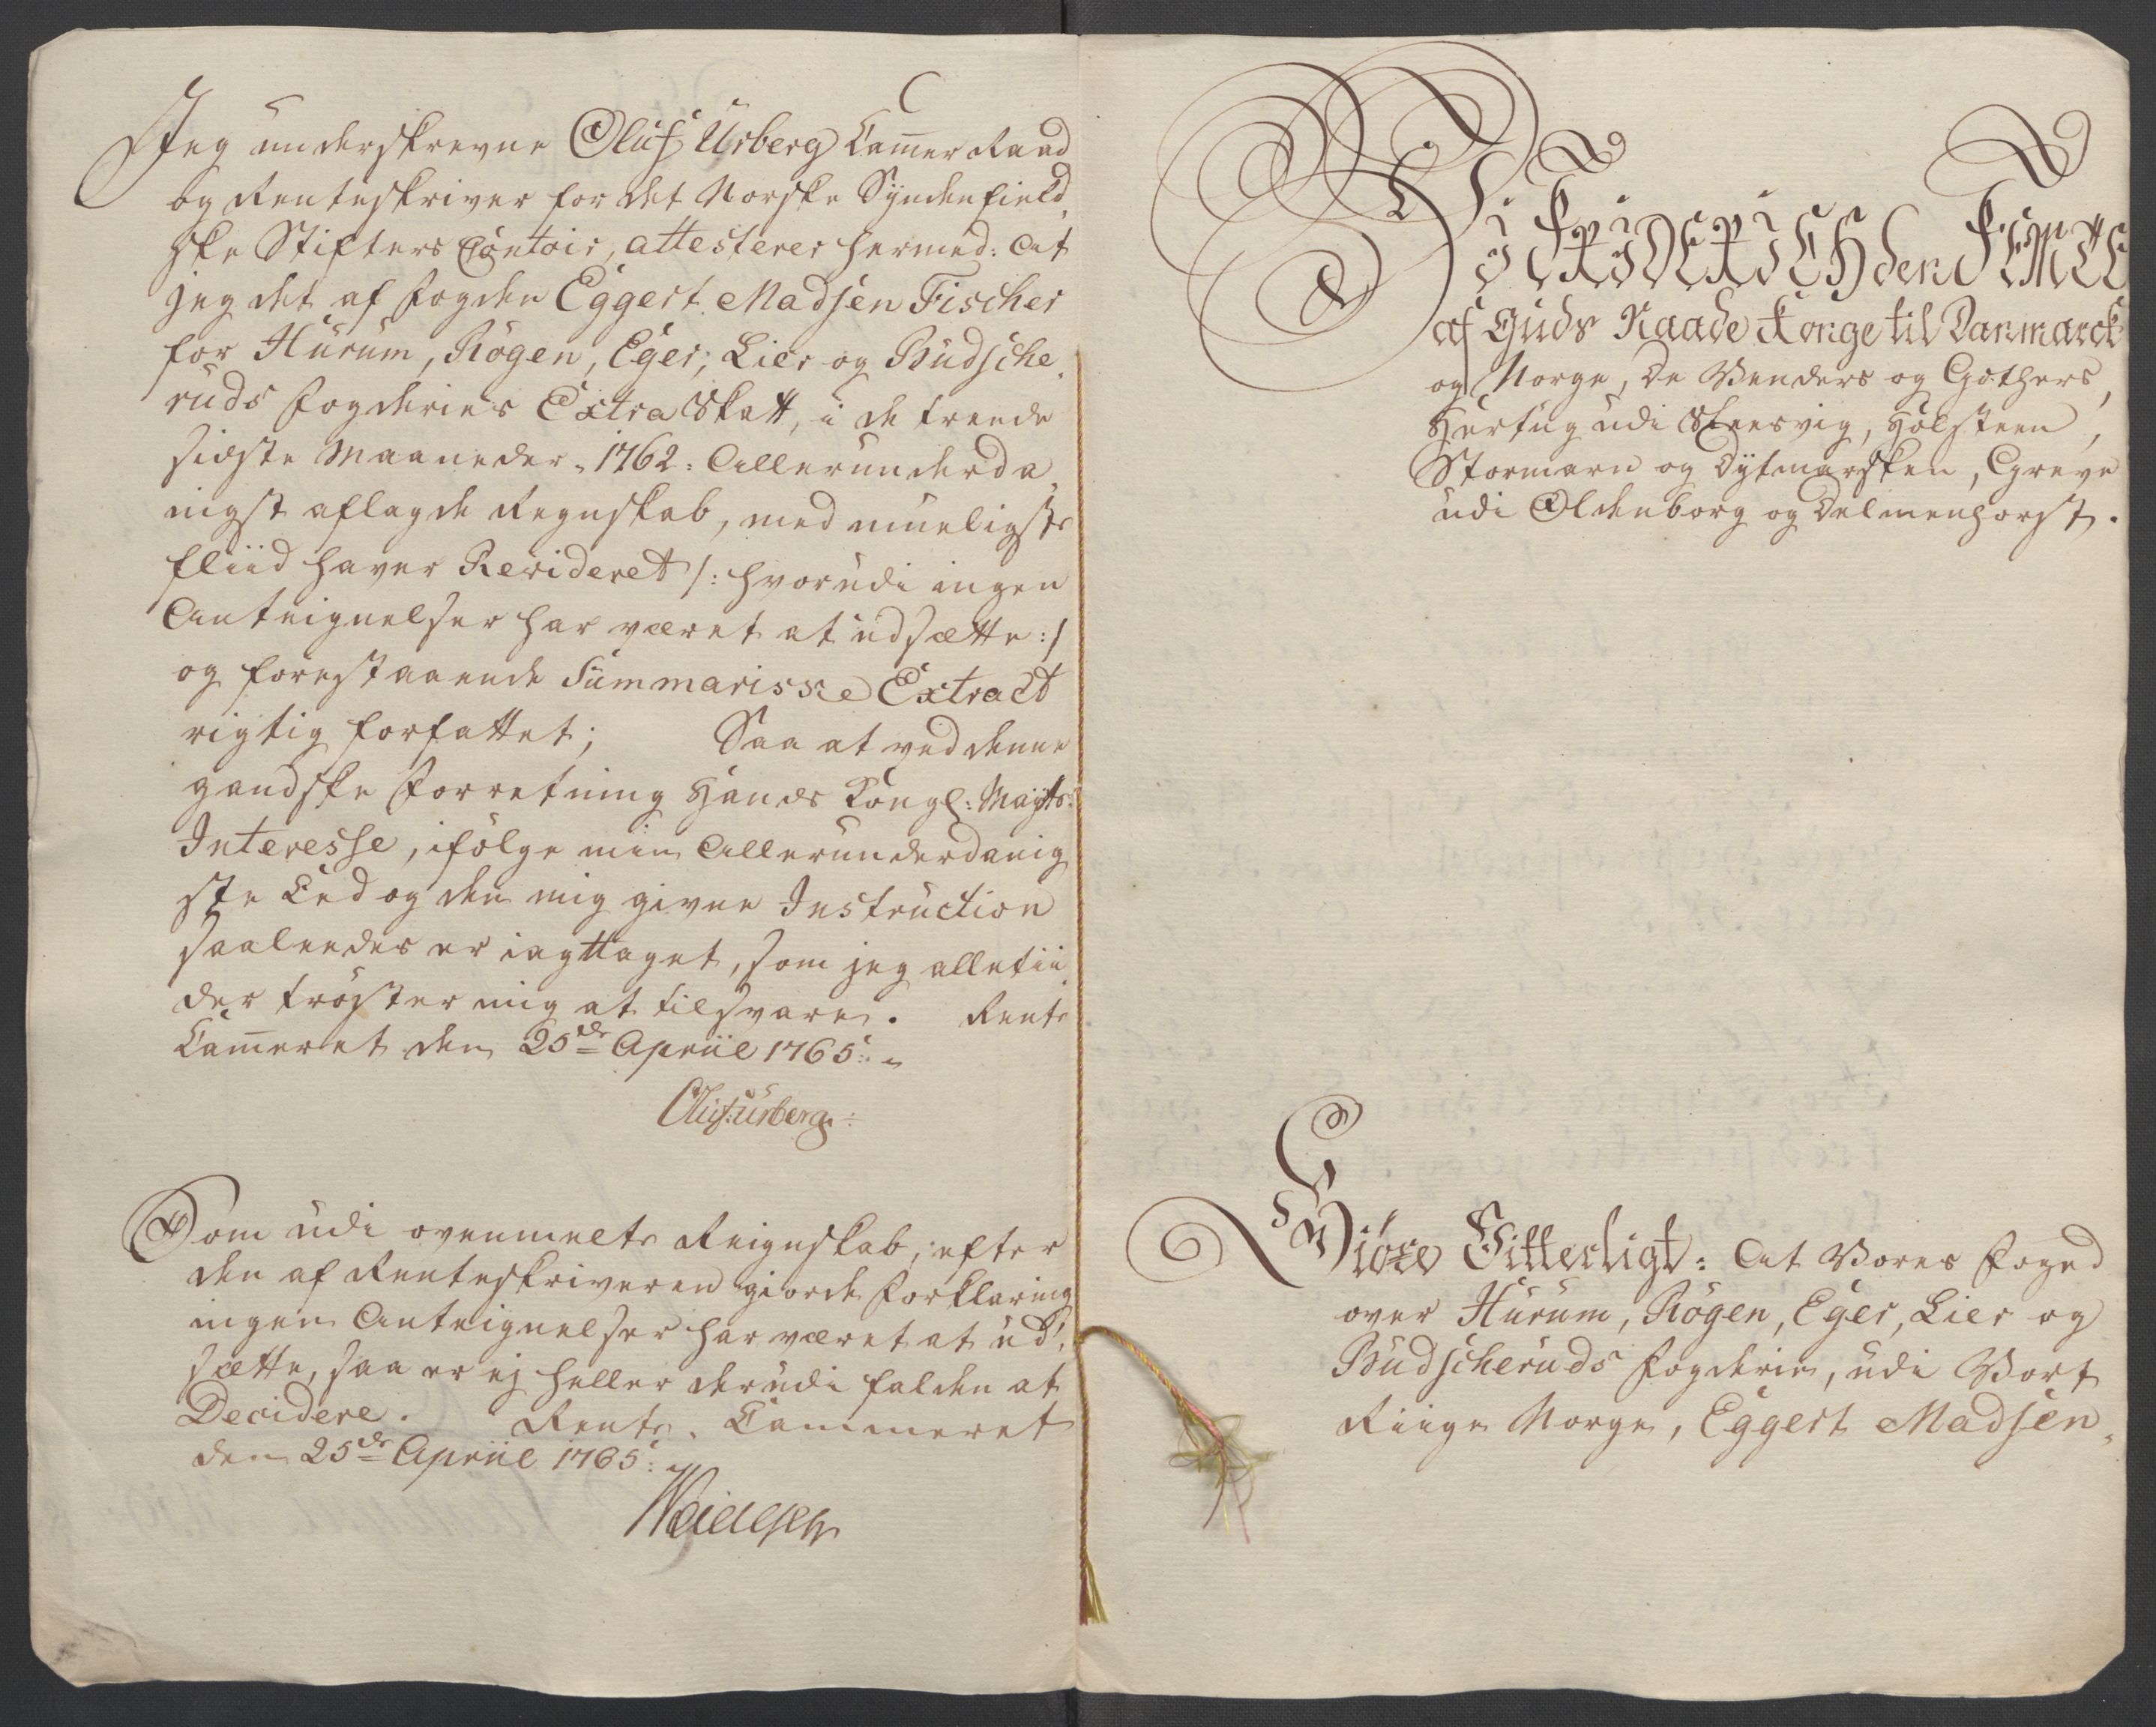 Jeg underskrevne Oluf Urberg Cam̄er Raad
og Renteskriver for det Norske Syndenfield,
ske Stifters Contoir, attesterer hermed: At
jeg det af Fogden Eggert Madsen Fischer
for Hurum, Rögen, Eger, Lier og Budsche,
ruds Fogderies Extra Skatt, i de trende
sidste Maaneder 1762: Allerunderda,
nigst aflagde Regnskab, med mueligste
fliid haver Revideret /: hvorudi ingen
Anteignelser har været at udsætte :/
og forestaaende Summariske Extract
rigtig forfattet; Saa at ved denne
gandske Forretning Hands Kongl: Mayts:
Interesse, ifölge min Allerunderdanig
ste Eed og den mig givne Instruction
saaleedes er iagttaget, som jeg alletii
der tröster mig at tilsvare. Rente
Cam̄eret den 25de Apriil 1765.
Oluf Urberg.
Som udi ovenmelte Reignskab, efter
den af Renteskriveren giorde Forklaring
ingen Anteignelser har været at ud,
sætte, saa er ej heller derudi falden at
Decidere. Rente Cammeret
den 25de Apriil 1765.
Vi FRIDERICH den FEMTE
af Guds Naade Konge til Danmarck
og Norge, de Venders og Gothers,
Hertug udi Slesvig, Holsteen,
Stormarn og Dytmarsken, Greve
udi Oldenborg og Delmenhorst.
Giöre Vitterligt: At Vores Foged
over Hurum, Rögen, Eger, Lier og
Budscheruds Fogderie, udi Vort
Riige Norge, Eggert Madsen